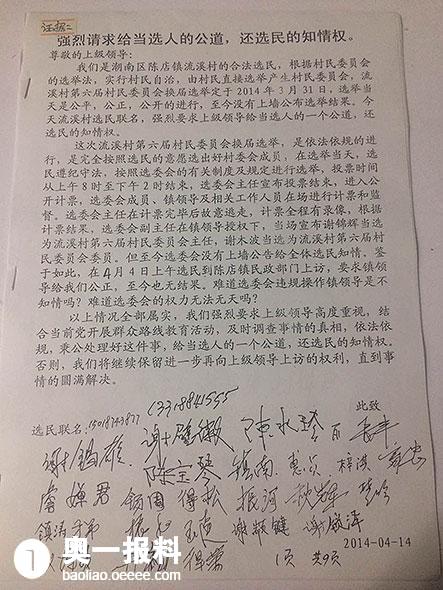 证据二
强烈请求给当选人的公道，还选民的知情权。
尊敬的上级领导：
我们是潮南区陈店镇流溪村的合法选民，根据村民委员会
的选举法，实行村民自治，由村民直接选举产生村民委员会，流
溪村第六届村民委员会换届选举定于2014年3月31日，选举当
天是公平，公正，公开的进行，至今没有上墙公布选举结果。今
天流溪村选民联名，强烈要求上级领导给当选人的一个公道，还
选民的知情权。
这次流溪村第六届村民委员会换届选举，是依法依规的进
行，是完全按照选民的意愿选出好村委会成员，在选举当天，选
民遵纪守法，按照选委会的有关制度及规定进行选举，投票时间
从上午8时至下午2时结束，选委会主任宣布投票结束，进入公
开计票，选委会成员、镇领导及相关工作人员在场进行计票和监
督。选委会主任在计票完毕后故意逃走，计票全程有录像，根据
计票结果，选委会副主任在镇领导授权下，当场宣布谢锦辉当选
为流溪村第六届村民委员会主任，谢木波当选为流溪村第六届村
民委员会委员。但至今选委会没有上墙公告给全体选民知情。鉴
于如此，在4月4日上午选民到陈店镇民政部门上访，要求镇领
导给我们公正，至今也无结果。难道选委会违规操作镇领导是不
知情吗？难道选委会的权力无法无天吗？
以上情况全部属实，我们强烈要求上级领导高度重视，结
合当前党开展群众路线教育活动，及时调查事情的真相，依法依
规，秉公处理好这件事，给当选人的一个公道，还选民的知情权。
否则，我们将继续保留进一步再向上级领导上访的权利，直到事
情的圆满解决。
此致
选民联名：
陈宝琴 镇南
得松 振河
1页 共9页
2014-04-14
1 奥一报料
baoliao.oeeee.com